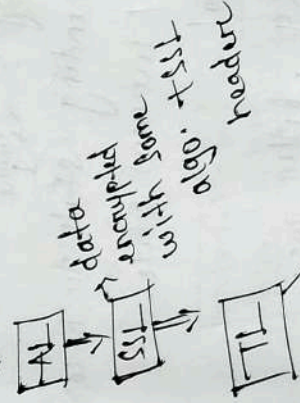 AL
SSL
data
encrypted
with some
algo. + SSL
header
TL